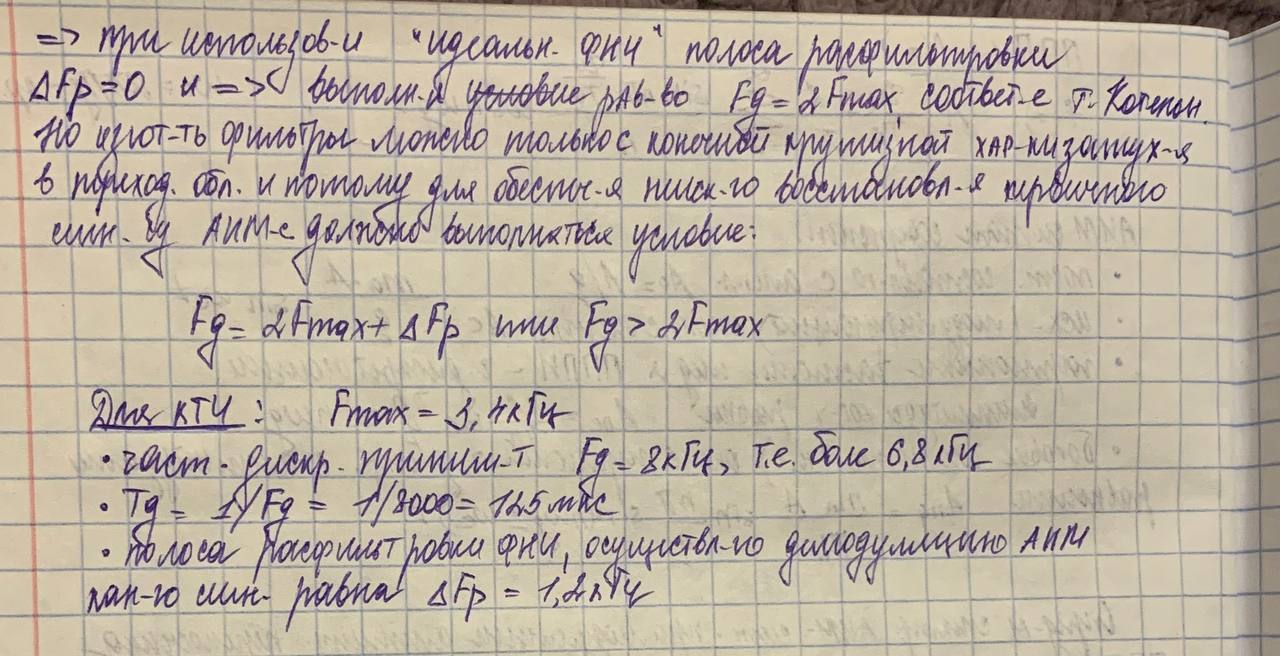 => при использов-и "идеальн. ФНЧ" полоса расфильтровки
ΔFp = 0 и => выполн-я условие рав-во Fg = 2Fmax, соответ-е т. Котельн.
Но изгот-ть фильтры можно только с конечной крутизной хар-ки затух-я
в переход. обл. и потому для обеспеч-я неиск-го восстановл-я первичного
сигн. из АИМ-с должно выполняться условие:
Fg = 2Fmax + ΔFp или Fg > 2Fmax
Для КТЧ: Fmax = 3,4кГц
• част. дискр. приним-т Fg = 8кГц, т.е. боле 6,8кГц
• Tg = 1/Fg = 1/8000 = 125мкс
• Полоса расфильтровки ФНЧ, осуществл-го демодуляцию АИМ
кан-го сигн. равна ΔFp = 1,2кГц